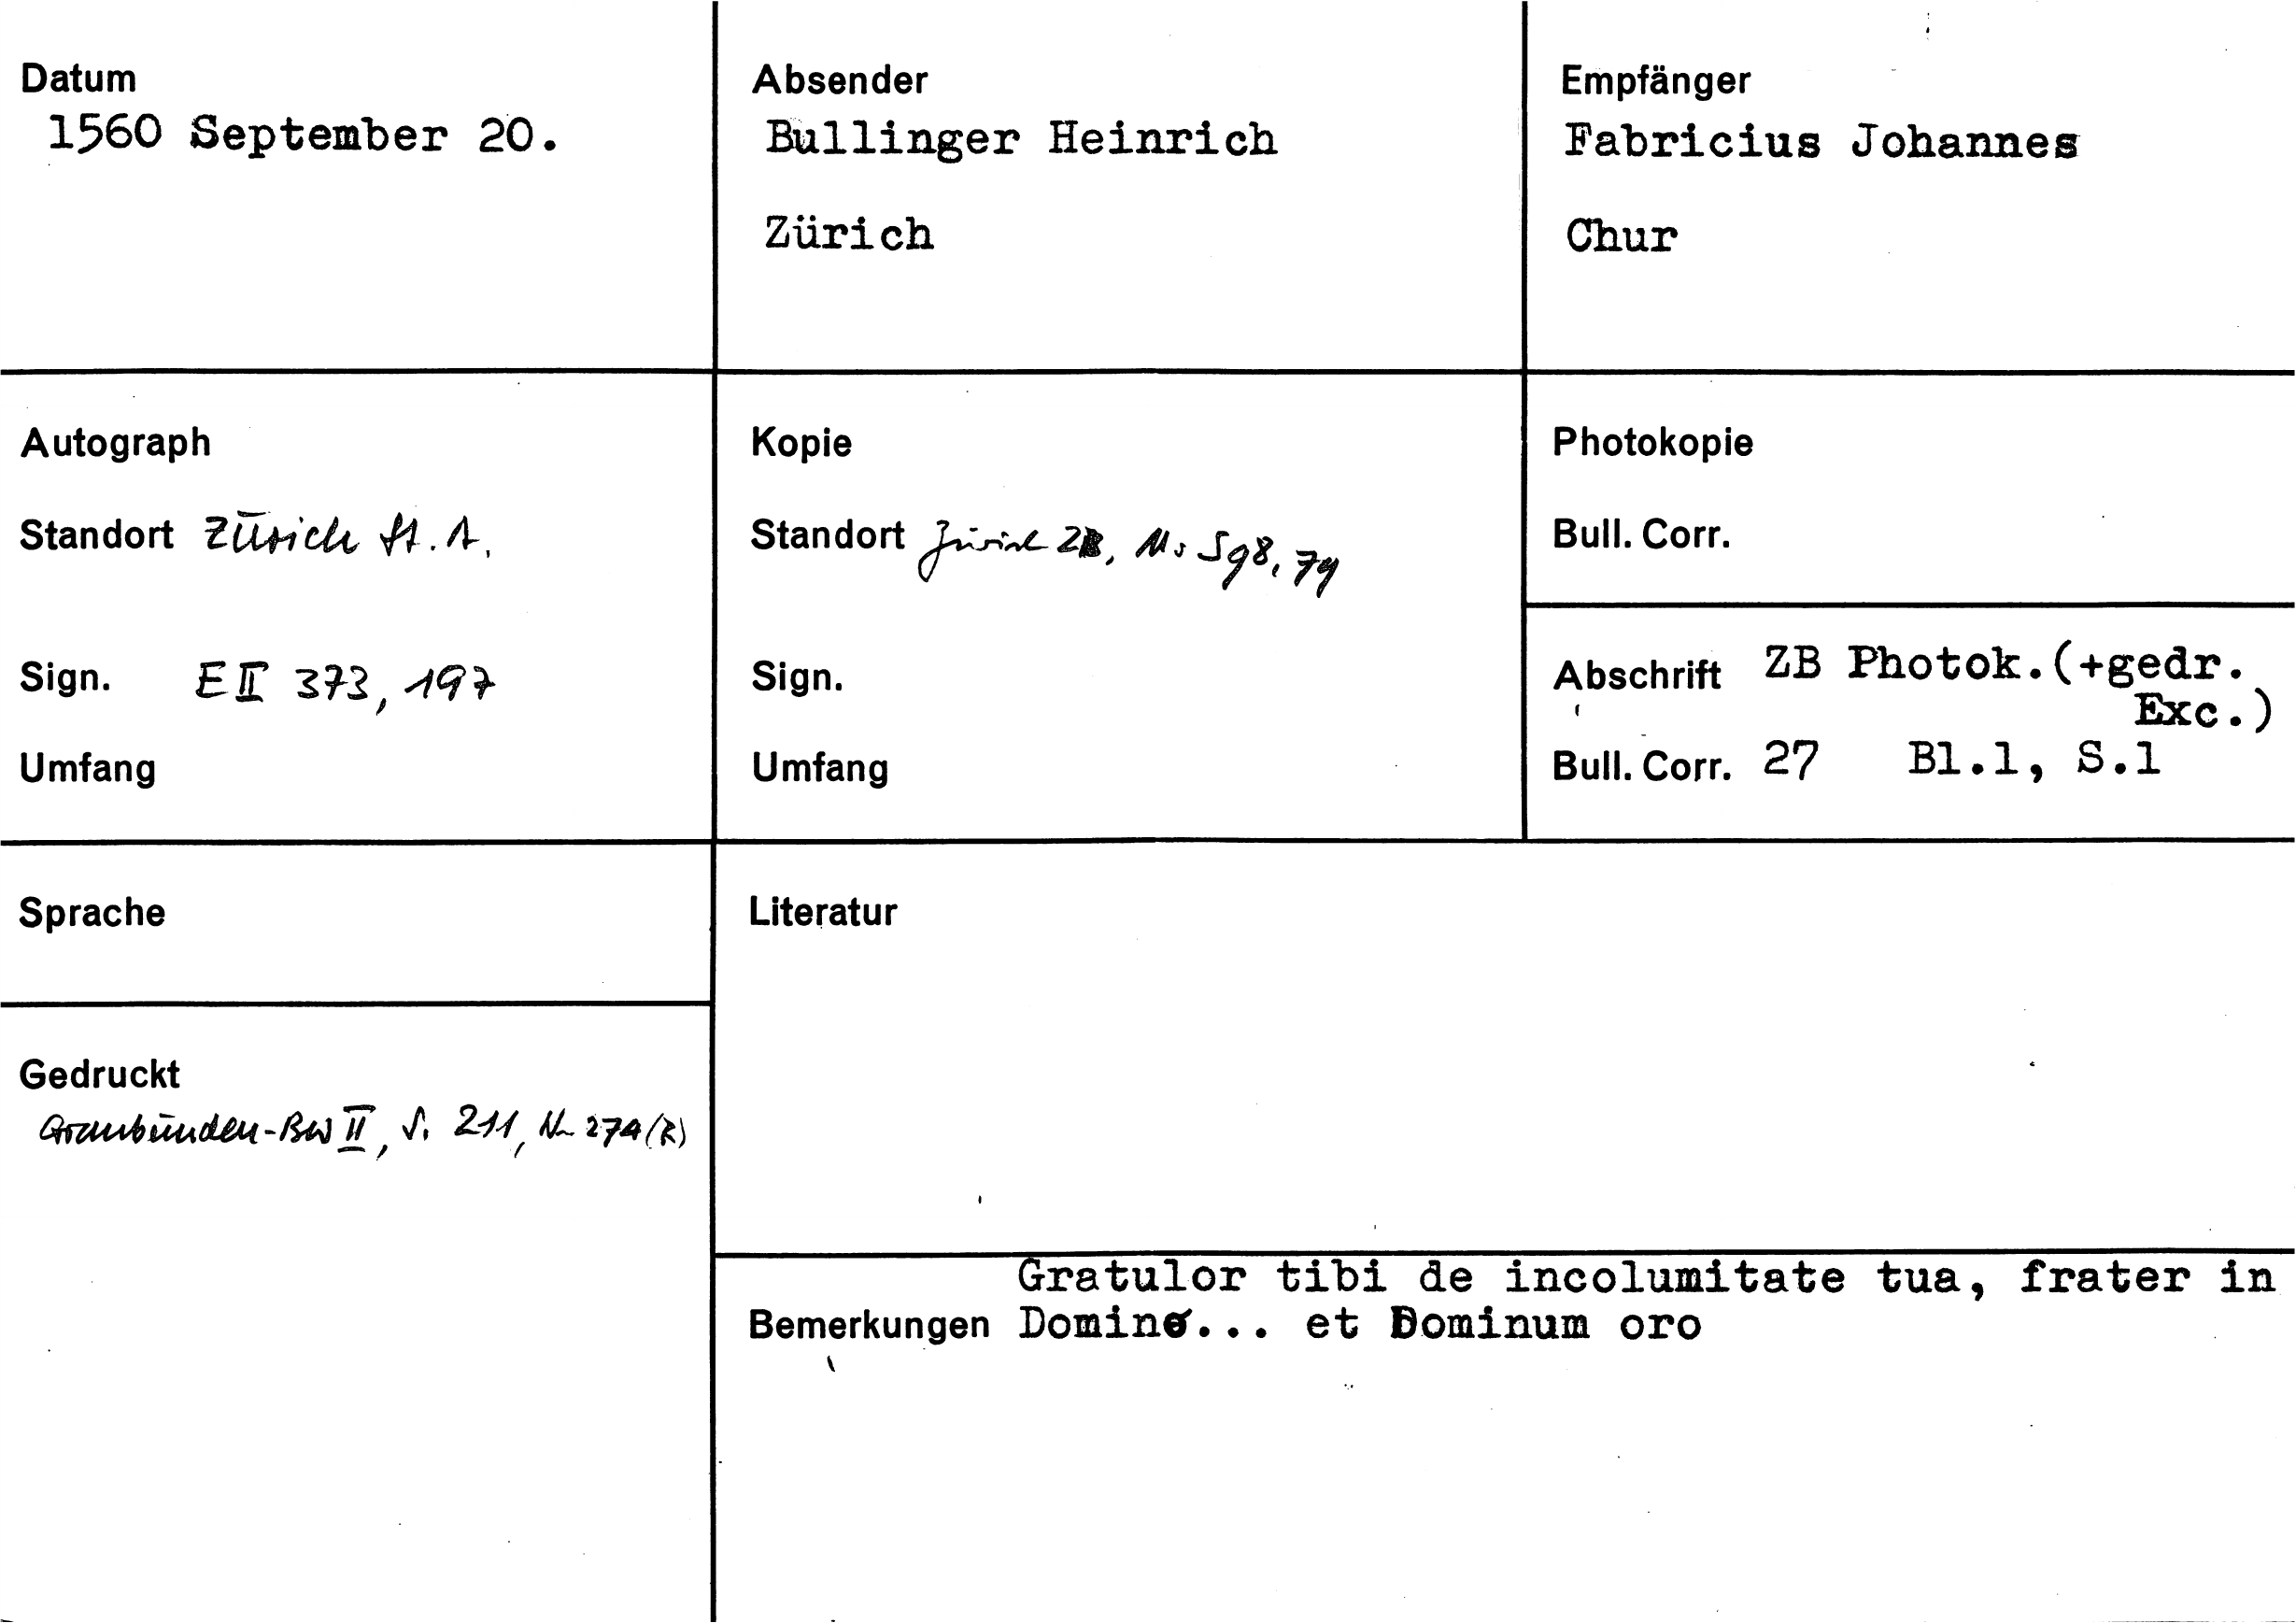 Datum
1560 September 20.
Absender
Bullinger Heinrich
Zürich
Empfänger
Fabricius Johannes
Chur
Autograph
Standort Zürich St. A.
Sign. E II 373, 197
Umfang
Kopie
Standort Zürich ZB, Ms S 98, 79
Sign.
Umfang
Photokopie
Bull. Corr.
Abschrift ZB Photok.(+gedr.
Exc.)
Bull. Corr. 27 Bl.1, S.1
Sprache
Literatur
Gedruckt
Graubünden-BW II, S. 211, Nr 274 (R)
Gratulor tibi de incolumitate tua, frater in
Bemerkungen Domino... et Dominum oro